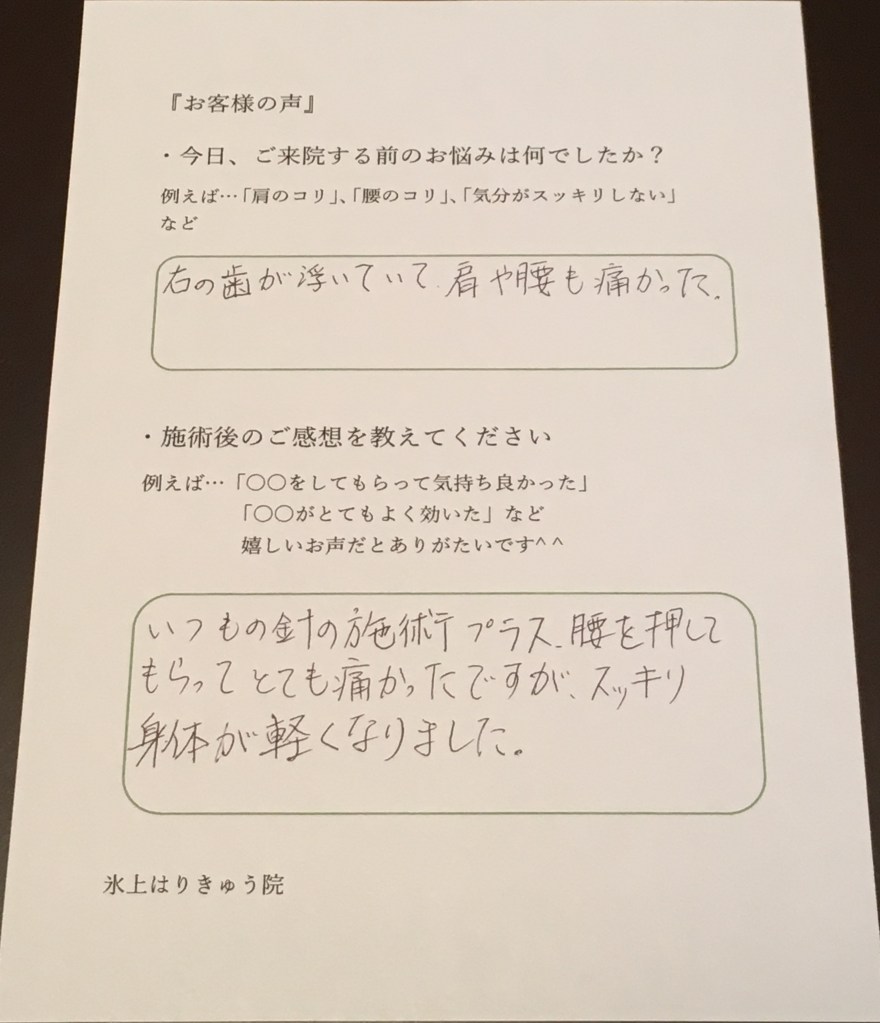 『お客様の声』
・今日、ご来院する前のお悩みは何でしたか？
例えば…「肩のコリ」、「腰のコリ」、「気分がスッキリしない」
など
右の歯が浮いていて、肩や腰も痛かった。
・施術後のご感想を教えてください
例えば…「〇〇をしてもらって気持ち良かった」
「〇〇がとてもよく効いた」など
嬉しいお声だとありがたいです^ ^
いつもの針の施術プラス、腰を押して
もらってとても痛かったですが、スッキリ
身体が軽くなりました。
氷上はりきゅう院